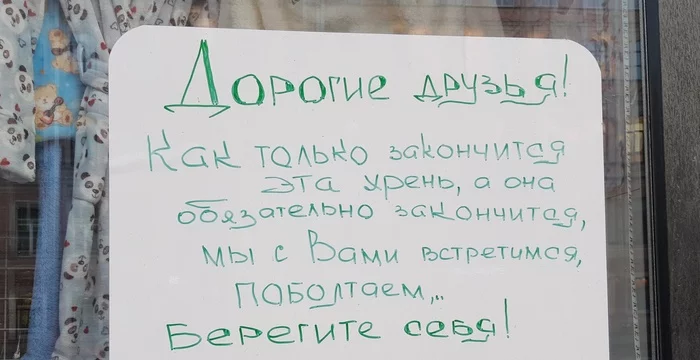 Дорогие друзья!
Как только закончится
эта хрень, а она
обязательно закончится,
мы с Вами встретимся,
поболтаем,..
Берегите себя!